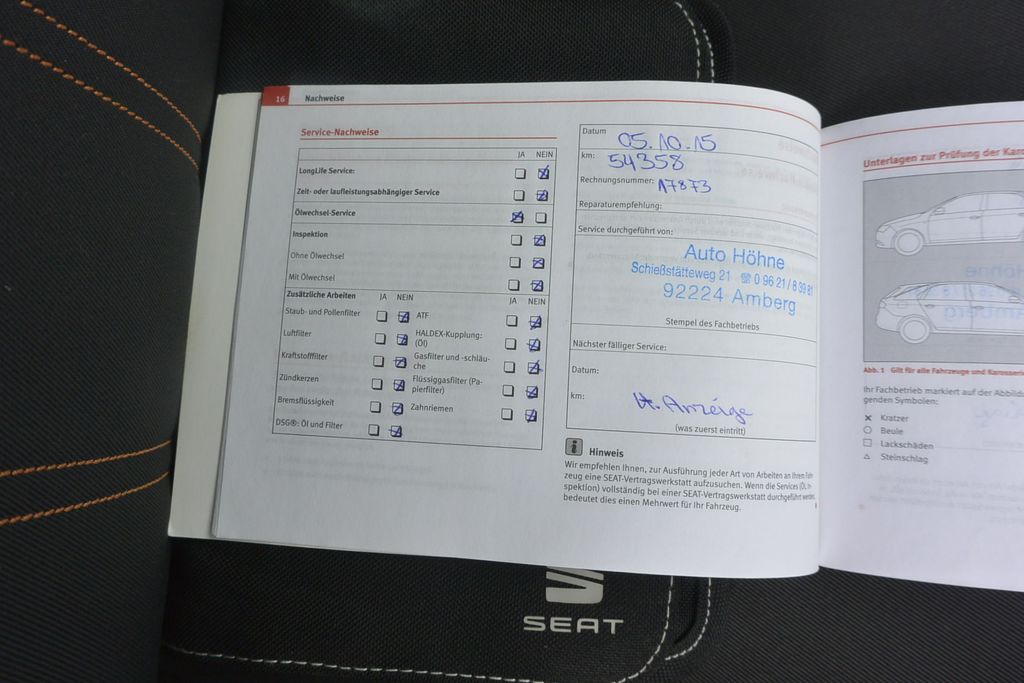 16 Nachweise
Service-Nachweise
JA NEIN
LongLife Service:
Zeit- oder laufleistungsabhängiger Service
Ölwechsel-Service
Inspektion
Ohne Ölwechsel
Mit Ölwechsel
Zusätzliche Arbeiten JA NEIN JA NEIN
Staub- und Pollenfilter ATF
Luftfilter HALDEX-Kupplung:
(Öl)
Kraftstofffilter Gasfilter und -schläu-
che
Zündkerzen Flüssiggasfilter (Pa-
pierfilter)
Bremsflüssigkeit Zahnriemen
DSG®: Öl und Filter
Datum 05.10.15
km: 54358
Rechnungsnummer: A7873
Reparaturempfehlung:
Service durchgeführt von:
Auto Höhne
Schießstätteweg 21 ☎ 0 96 21 / 8 39 81
92224 Amberg
Stempel des Fachbetriebs
Nächster fälliger Service:
Datum:
km: lt. Anzeige
(was zuerst eintritt)
i Hinweis
Wir empfehlen Ihnen, zur Ausführung jeder Art von Arbeiten an Ihrem Fahr-
zeug eine SEAT-Vertragswerkstatt aufzusuchen. Wenn die Services (Öl, In-
spektion) vollständig bei einer SEAT-Vertragswerkstatt durchgeführt werden,
bedeutet dies einen Mehrwert für Ihr Fahrzeug.
Unterlagen zur Prüfung der
Abb. 1 Gilt für alle Fahrzeuge und
Ihr Fachbetrieb markiert auf der
genden Symbolen:
Kratzer
Beule
Lackschäden
Steinschlag
SEAT